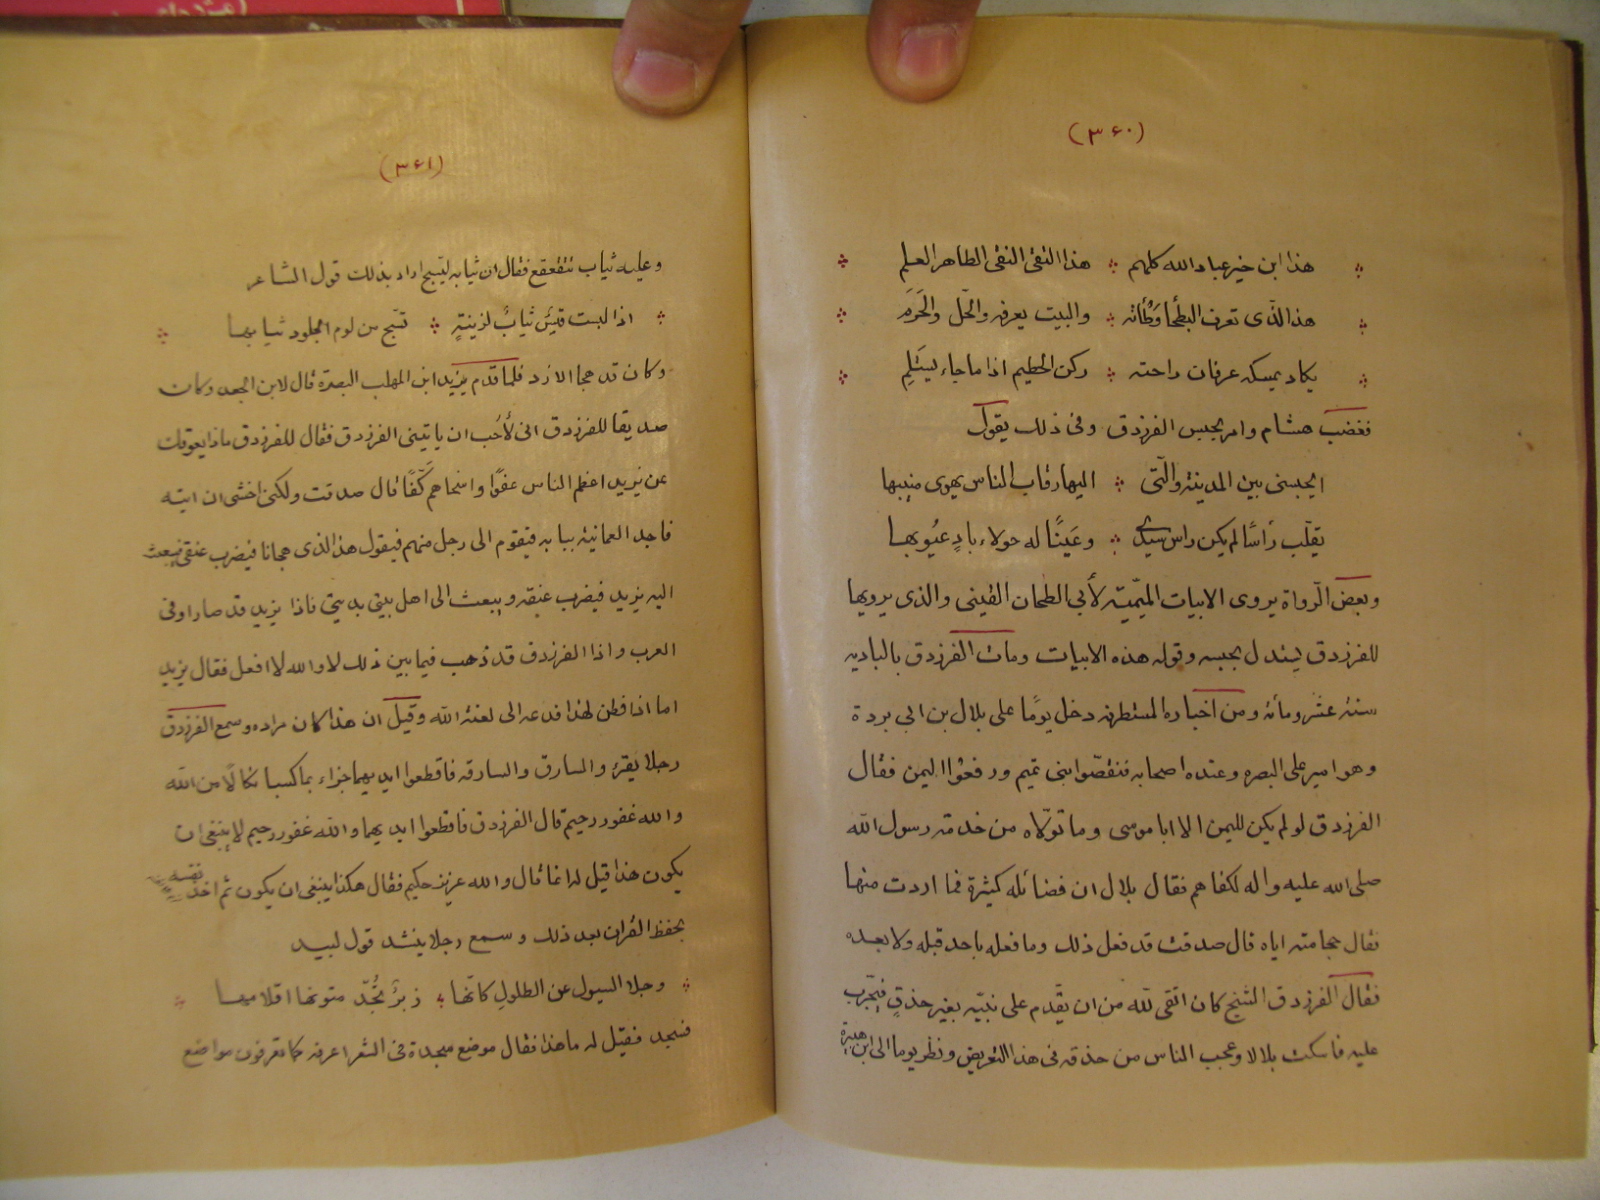 (۳۶۰)
هذا ابن خير عباد الله كلهم ؞ هذا التقى النقى الطاهر العلم
هذا الذى تعرف البطحا وطأته ؞ والبيت يعرفه والحّل والحَرَم
يكاد يمسكه عرفان راحته ؞ ركن الحطيم اذا ما جاء يستلم
فغضب هشام وامر بحبس الفرزدق وفى ذلك يقول
ايحبسنى بين المدينة والّتى ؞ اليها رقاب الناس يهوى منيبها
يقلّب رأسًا لم يكن راس سيّد ؞ وعَينًا له حولاء بادٍ عيُوبها
وبعض الرّواة يروى الابيات الميّميّه لأبي الطحان القينى والذى يرويها
للفرزدق يستدل بحبسه وقوله هذه الابيات ومات الفرزدق بالباديه
سنة عشر ومأئة ومن اخباره المستطرفه دخل يومًا على بلال بن ابى بردة
وهو امير على البصره وعنده اصحابه فتنقصّوا بنى تميم ورفعوا اليمن فقال
الفرزدق لو لم يكن لليمن الا ابا موسى وما تولّاه من خدمة رسول الله
صلى الله عليه واله لكفاهم فقال بلال ان فضائله كثيرة فما اردت منها
فقال حجامته اياه قال صدقت قد فعل ذلك وما فعله باحد قبله ولا بعده
فقال الفرزدق الشيخ كان اتقى لله من ان يقدم على نبيّه بغير حذقٍ فيجّرب
عليه فاسكت بلالا وعجب الناس من حذقه فى هذا التعريض ونظر يوما الى ابن هبيرة
(۳۶۱)
وعليه ثياب تتقعقع فقال ان ثيابه ليّسبح اراد بذلك قول الشاعر
اذا لبست قيسٌ ثيابٌ لزينةٍ ؞ تسّبح من لوم الجلود ثيابها
وكان قد هجا الازد فلما قدم يزيد ابن المهلب البصرة قال لابن الجعد وكان
صديقا للفرزدق انى لأحُب ان ياتينى الفرزدق فقال للفرزدق ماذا يعوقك
عن يزيد اعظم الناس عفوًا واسخاهم كّفًا قال صدقت ولكنى اخشى ان اتيه
فاجد العمانية ببابه فيقوم الى رجل منهم فيقول هذا الذى هجانا فيضرب عنقى فيبعث
اليه يزيد فيضرب عنقه ويبعث الى اهل بيتى بديتى فاذا يزيد قد صار اوفى
العرب واذا الفرزدق قد ذهب فيما بين ذلك لا والله لا افعل فقال يزيد
اما اذا فطن لهذا فدعه الى لعنة الله وقيل ان هذا كان مراده وسمع الفرزدق
رجلا يقرء والسارق والسارقه فاقطعوا ايديهما جزاء بما كسبا نكالًا من الله
والله غفور رحيم قال الفرزدق فاقطعوا ايديهما والله غفور رحيم لا ينبغى ان
يكون هذا قيل له انما قال والله عزيز حكيم فقال هكذا ينبغى ان يكون ثم اخذ نفسه
بحفظ القران بعد ذلك وسمع رجلا ينشد قول لبيد
؞ وجلا السيول عن الطلولِ كانّها ؞ زبرٌ تُجدّ متونها اقلامها ؞
فسجد فقيل له ما هذا فقال موضع سجدة فى الشعر اعرفه كما تعرفون مواضع